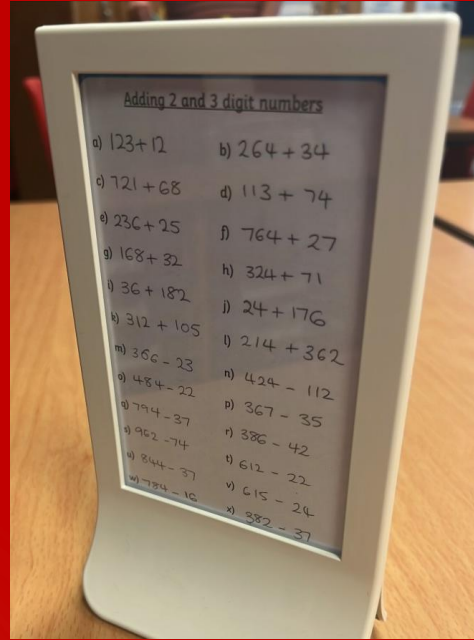 Adding 2 and 3 digit numbers
a) 123+12 b) 264+34
c) 721+68 d) 113+ 74
e) 236+25 f) 764+ 27
g) 168+ 32 h) 324+ 71
i) 36 + 182 j) 24+176
k) 312 + 105 l) 214 +362
m) 366 - 23 n) 424 - 112
o) 484-22 p) 367 - 35
q) 794-37 r) 386 - 42
s) 962 -74 t) 612 - 22
u) 844- 37 v) 615 - 24
w) 784 - 16 x) 382 - 37